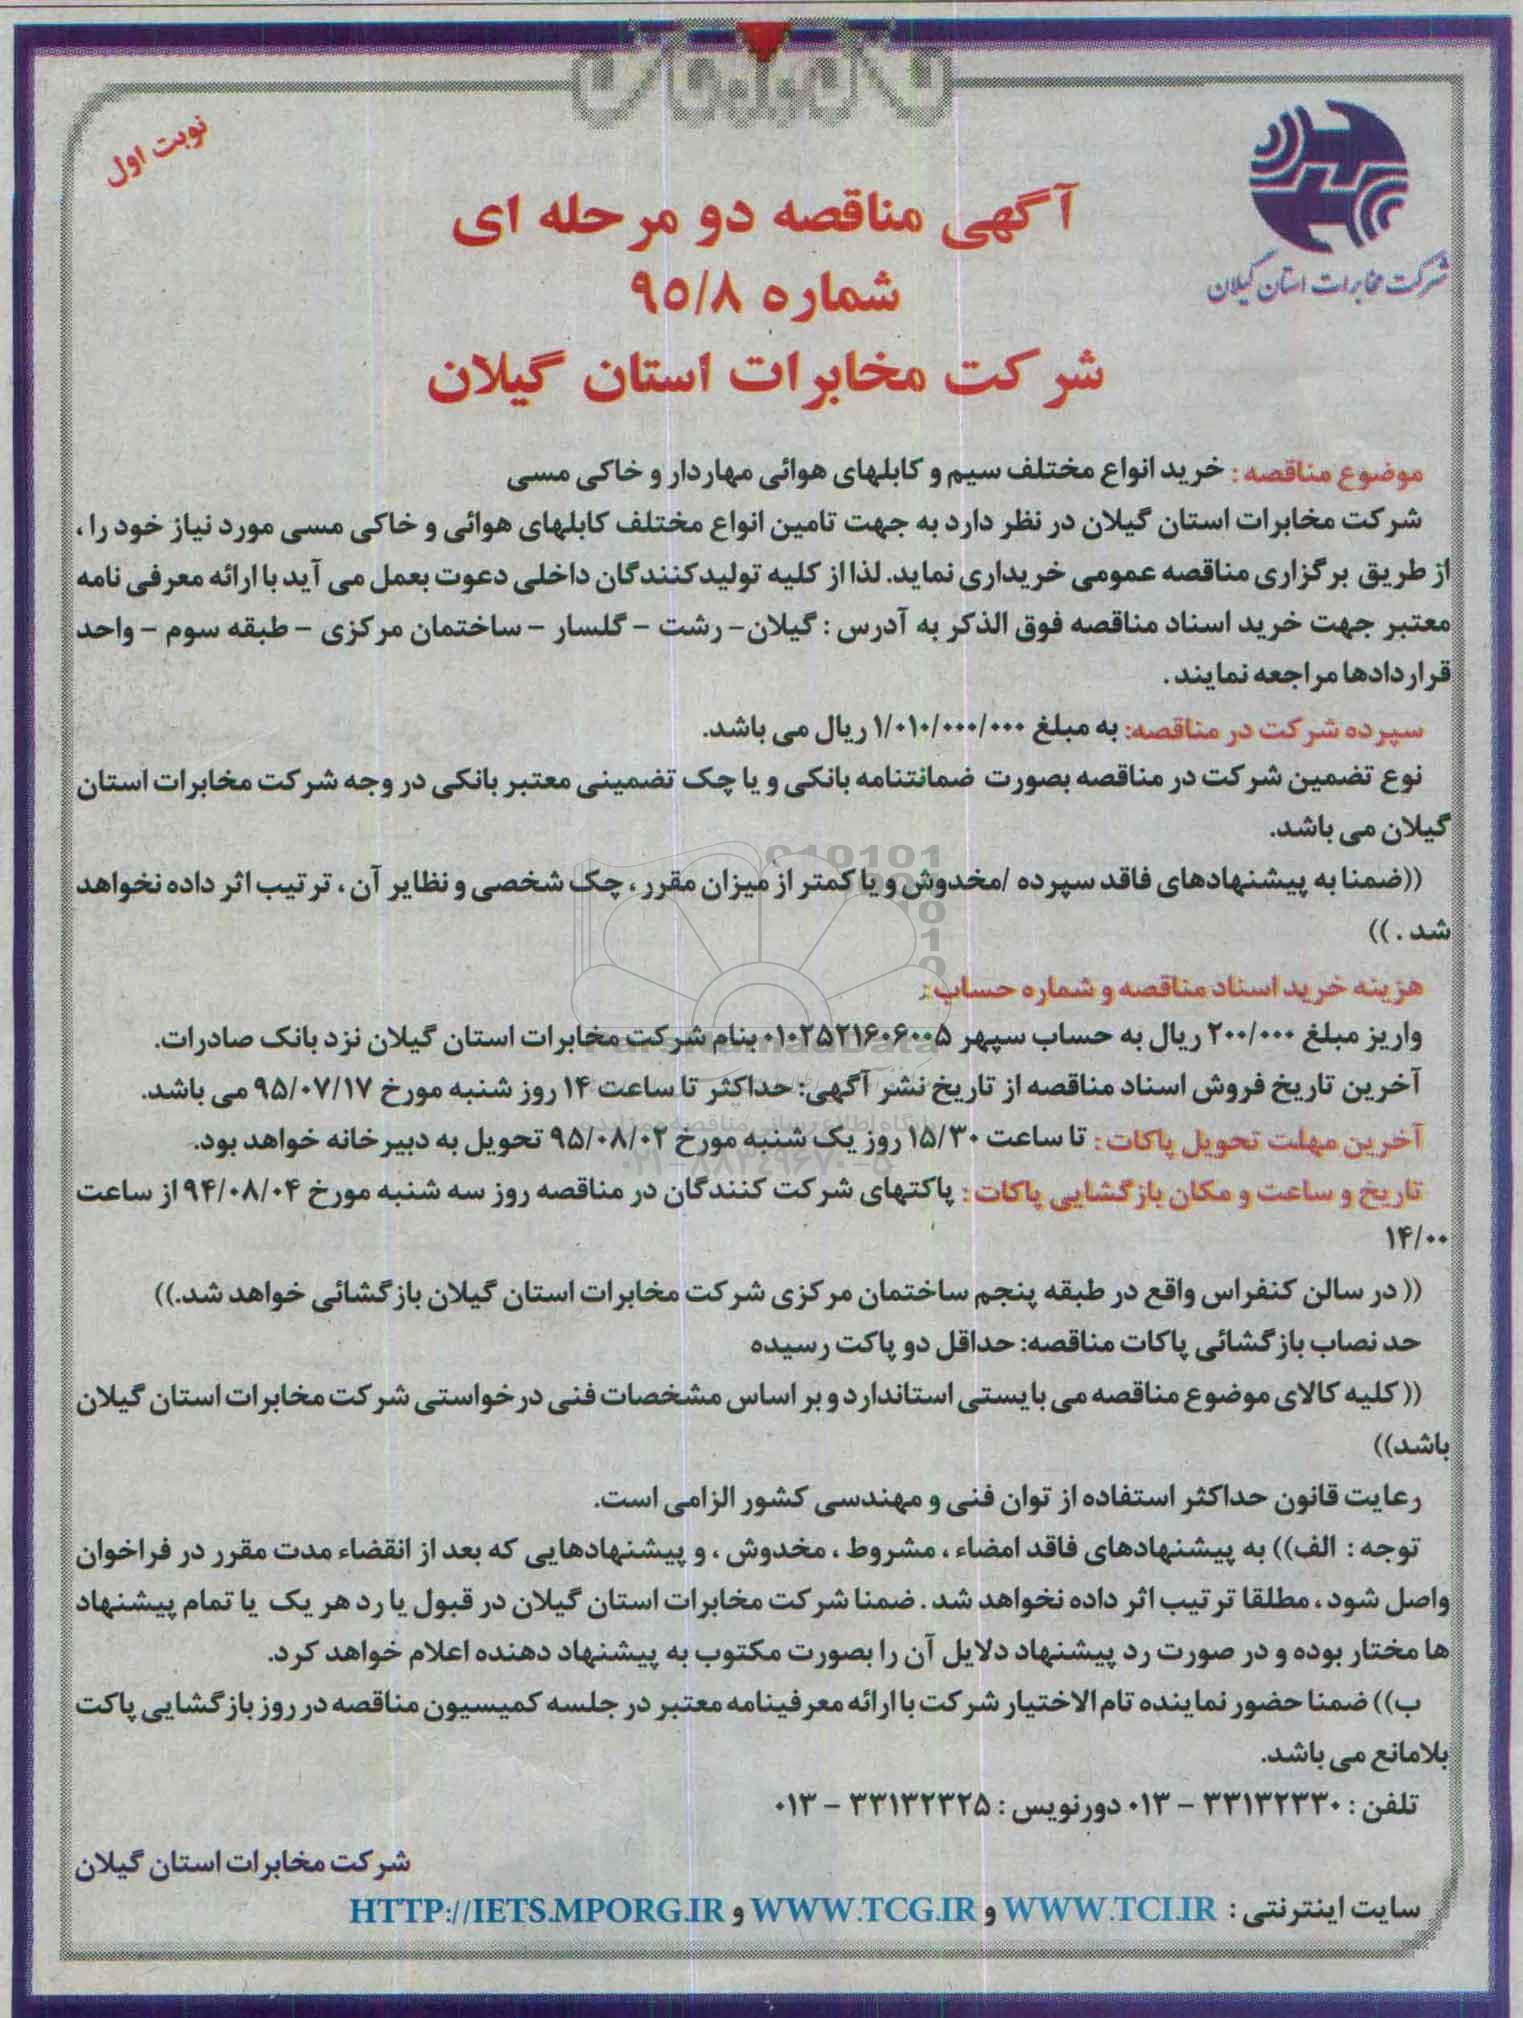 نوبت اول
شرکت مخابرات استان گیلان
آگهی مناقصه دو مرحله ای
شماره ۹۵/۸
شرکت مخابرات استان گیلان
موضوع مناقصه : خرید انواع مختلف سیم و کابلهای هوائی مهاردار و خاکی مسی
شرکت مخابرات استان گیلان در نظر دارد به جهت تامین انواع مختلف کابلهای هوائی و خاکی مسی مورد نیاز خود را ،
از طریق برگزاری مناقصه عمومی خریداری نماید. لذا از کلیه تولیدکنندگان داخلی دعوت بعمل می آید با ارائه معرفی نامه
معتبر جهت خرید اسناد مناقصه فوق الذکر به آدرس : گیلان- رشت - گلسار - ساختمان مرکزی - طبقه سوم - واحد
قراردادها مراجعه نمایند .
سپرده شرکت در مناقصه: به مبلغ ۱/۰۱۰/۰۰۰/۰۰۰ ریال می باشد.
نوع تضمین شرکت در مناقصه بصورت ضمانتنامه بانکی و یا چک تضمینی معتبر بانکی در وجه شرکت مخابرات استان
گیلان می باشد.
((ضمنا به پیشنهادهای فاقد سپرده /مخدوش و یا کمتر از میزان مقرر ، چک شخصی و نظایر آن ، ترتیب اثر داده نخواهد
شد . ))
هزینه خرید اسناد مناقصه و شماره حساب :
واریز مبلغ ۲۰۰/۰۰۰ ریال به حساب سپهر ۰۱۰۲۵۲۱۶۰۶۰۰۵ بنام شرکت مخابرات استان گیلان نزد بانک صادرات.
آخرین تاریخ فروش اسناد مناقصه از تاریخ نشر آگهی: حداکثر تا ساعت ۱۴ روز شنبه مورخ ۹۵/۰۷/۱۷ می باشد.
آخرین مهلت تحویل پاکات : تا ساعت ۱۵/۳۰ روز یک شنبه مورخ ۹۵/۰۸/۰۲ تحویل به دبیرخانه خواهد بود.
تاریخ و ساعت و مکان بازگشایی پاکات : پاکتهای شرکت کنندگان در مناقصه روز سه شنبه مورخ ۹۴/۰۸/۰۴ از ساعت
۱۴/۰۰
(( در سالن کنفراس واقع در طبقه پنجم ساختمان مرکزی شرکت مخابرات استان گیلان بازگشائی خواهد شد.))
حد نصاب بازگشائی پاکات مناقصه: حداقل دو پاکت رسیده
(( کلیه کالای موضوع مناقصه می بایستی استاندارد و بر اساس مشخصات فنی درخواستی شرکت مخابرات استان گیلان
باشد))
رعایت قانون حداکثر استفاده از توان فنی و مهندسی کشور الزامی است.
توجه : الف)) به پیشنهادهای فاقد امضاء ، مشروط ، مخدوش ، و پیشنهادهایی که بعد از انقضاء مدت مقرر در فراخوان
واصل شود ، مطلقا ترتیب اثر داده نخواهد شد . ضمنا شرکت مخابرات استان گیلان در قبول یا رد هر یک یا تمام پیشنهاد
ها مختار بوده و در صورت رد پیشنهاد دلایل آن را بصورت مکتوب به پیشنهاد دهنده اعلام خواهد کرد.
ب)) ضمنا حضور نماینده تام الاختیار شرکت با ارائه معرفینامه معتبر در جلسه کمیسیون مناقصه در روز بازگشایی پاکت
بلامانع می باشد.
تلفن : ۳۳۱۳۲۳۳۰ - ۰۱۳ دورنویس : ۳۳۱۳۲۳۲۵ - ۰۱۳
شرکت مخابرات استان گیلان
سایت اینترنتی : WWW.TCI.IR و WWW.TCG.IR و HTTP://IETS.MPORG.IR